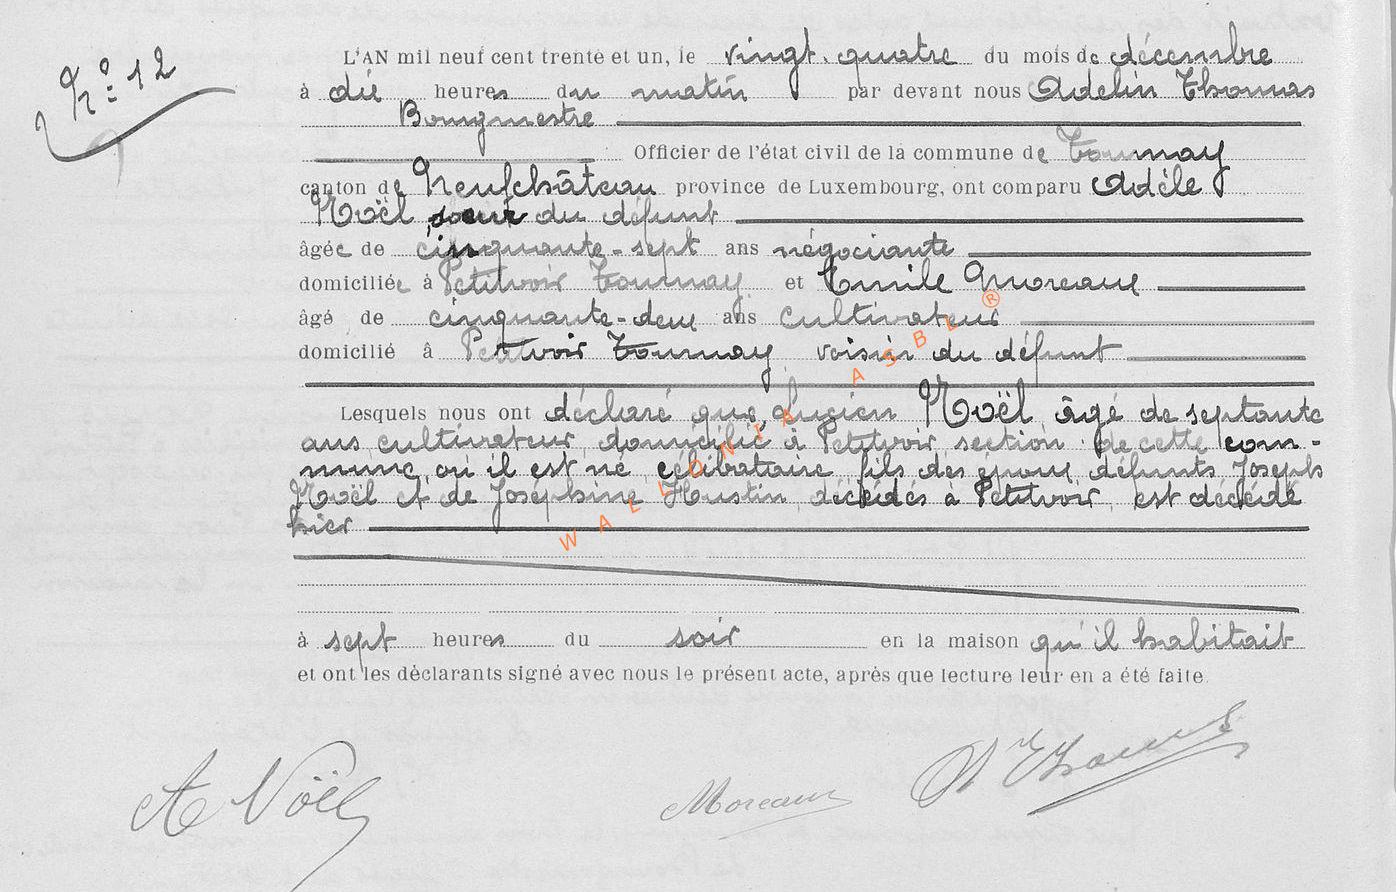 N° 12
L'AN mil neuf cent trente et un, le vingt-quatre du mois de décembre
à dix heures du matin par devant nous Adelin Thomas
Bourgmestre
Officier de l'état civil de la commune de Tournay
canton de Neufchâteau province de Luxembourg, ont comparu Adèle
Noël soeur du défunt
âgée de cinquante-sept ans négociante
domiciliée à Petitvoir Tournay et Emile Moreaux
âgé de cinquante-deux ans cultivateur
domicilié à Petitvoir Tournay voisin du défunt
Lesquels nous ont déclaré que Lucien Noël âgé de septante
ans cultivateur domicilié à Petitvoir section de cette com-
mune, où il est né célibataire fils des époux défunts Joseph
Noël et de Joséphine Hustin décédés à Petitvoir, est décédé
hier
à sept heures du soir en la maison qu'il habitait
et ont les déclarants signé avec nous le présent acte, après que lecture leur en a été faite.
A Noël Moreaux A Thomas
WALLONIA ASBL ®